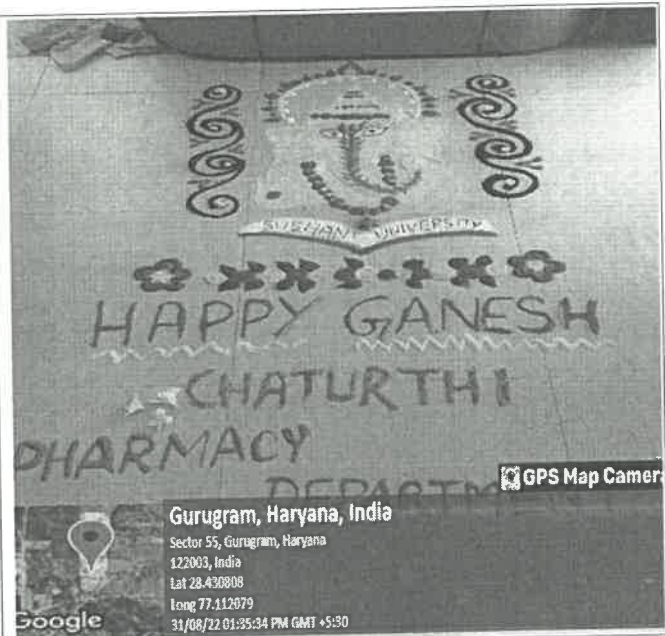 SUSHANT UNIVERSITY
HAPPY GANESH
CHATURTHI
PHARMACY
GPS Map Camera
Gurugram, Haryana, India
Sector 55, Gurugram, Haryana
122003, India
Lat 28.430808
Long 77.112079
31/08/22 01:35:34 PM GMT +5:30
Google